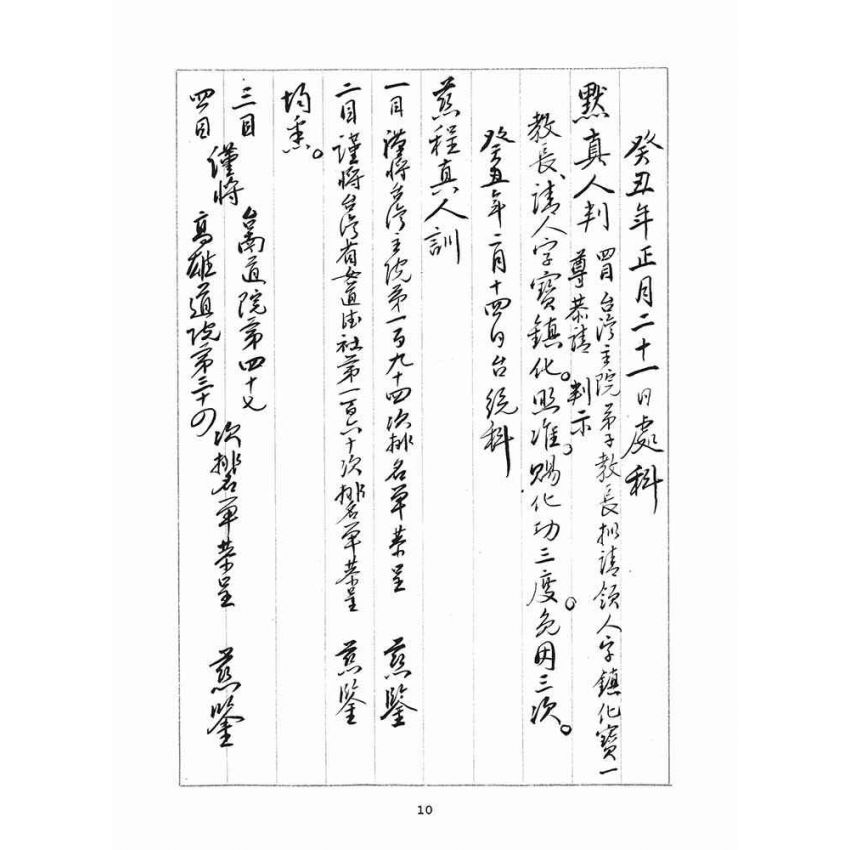 癸丑年正月二十一日處科
默真人判 四目台湾主院弟子教長拟請領人字鎮化寶一
尊恭請 判示
教長、請人字寶鎮化。照准。賜化功三度。免因三次。
癸丑年二月十四日台統科
慈程真人訓
一目 謹將台湾主院第一百九十四次排名單恭呈 慈鑒
二目 謹將台湾省女道德社第一百六十次排名單恭呈 慈鑒
均悉。
三目 謹將 台南道院第四十七
四目 高雄道院第三十四 次排名單恭呈 慈鑒
10